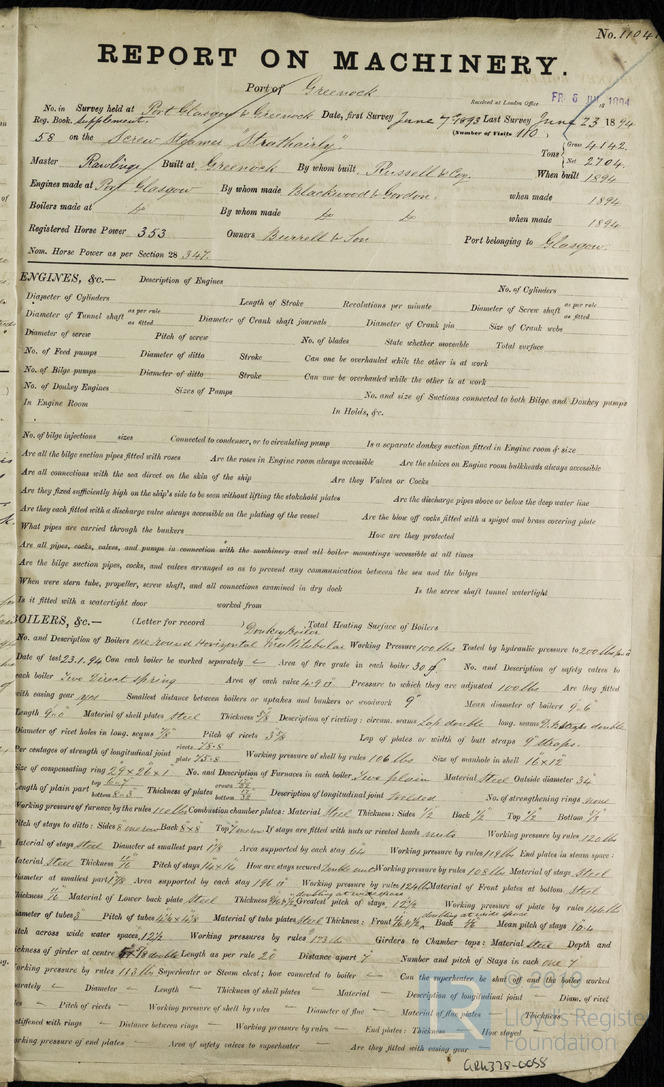 No. 11041
REPORT ON MACHINERY.
Port of Greenock
Received at London Office FRI 6 JUL 1894
No. in Survey held at Port Glasgow & Greenock Date, first Survey June 7th 1893 Last Survey June 23 1894
Reg. Book. Supplement. (Number of Visits 110.)
58 on the Screw Steamer "Strathairly" Tons { Gross 4142. Net 2704.
Master Rawlings Built at Greenock By whom built Russell & Coy. When built 1894
Engines made at Port Glasgow By whom made Blackwood & Gordon. when made 1894
Boilers made at Do By whom made Do Do when made 1894
Registered Horse Power 353 Owners Burrell & Son Port belonging to Glasgow.
Nom. Horse Power as per Section 28 347.
ENGINES, &c.— Description of Engines No. of Cylinders
Diameter of Cylinders Length of Stroke Revolutions per minute Diameter of Screw shaft as per rule as fitted
Diameter of Tunnel shaft as per rule as fitted Diameter of Crank shaft journals Diameter of Crank pin Size of Crank webs
Diameter of screw Pitch of screw No. of blades State whether moveable Total surface
No. of Feed pumps Diameter of ditto Stroke Can one be overhauled while the other is at work
No. of Bilge pumps Diameter of ditto Stroke Can one be overhauled while the other is at work
No. of Donkey Engines Sizes of Pumps No. and size of Suctions connected to both Bilge and Donkey pumps
In Engine Room In Holds, &c.
No. of bilge injections sizes Connected to condenser, or to circulating pump Is a separate donkey suction fitted in Engine room & size
Are all the bilge suction pipes fitted with roses Are the roses in Engine room always accessible Are the sluices on Engine room bulkheads always accessible
Are all connections with the sea direct on the skin of the ship Are they Valves or Cocks
Are they fixed sufficiently high on the ship's side to be seen without lifting the stokehold plates Are the discharge pipes above or below the deep water line
Are they each fitted with a discharge valve always accessible on the plating of the vessel Are the blow off cocks fitted with a spigot and brass covering plate
What pipes are carried through the bunkers How are they protected
Are all pipes, cocks, valves, and pumps in connection with the machinery and all boiler mountings accessible at all times
Are the bilge suction pipes, cocks, and valves arranged so as to prevent any communication between the sea and the bilges
When were stern tube, propeller, screw shaft, and all connections examined in dry dock Is the screw shaft tunnel watertight
Is it fitted with a watertight door worked from
BOILERS, &c.— (Letter for record ) Total Heating Surface of Boilers
Donkey Boiler
No. and Description of Boilers one round Horizontal Multitubular Working Pressure 100 lbs Tested by hydraulic pressure to 200 lbs
Date of test 23.1.94 Can each boiler be worked separately Area of fire grate in each boiler 30 No. and Description of safety valves to
each boiler Two Direct spring Area of each valve 4.9 Pressure to which they are adjusted 100 lbs Are they fitted
with easing gear yes Smallest distance between boilers or uptakes and bunkers or woodwork 9" Mean diameter of boilers 9-6"
Length 9-0" Material of shell plates Steel Thickness Description of riveting: circum. seams Lap double long. seams double
Diameter of rivet holes in long. seams 7/8" Pitch of rivets Lap of plates or width of butt straps 9" straps.
Per centages of strength of longitudinal joint rivets 75.8 plate 75.8 Working pressure of shell by rules 106 lbs Size of manhole in shell 16" x 12"
Size of compensating ring 29 x 26 x 1" No. and Description of Furnaces in each boiler Two plain Material Steel Outside diameter 34"
Length of plain part top bottom Thickness of plates crown bottom Description of longitudinal joint Welded No. of strengthening rings none
Working pressure of furnace by the rules 110 lbs Combustion chamber plates: Material Steel Thickness: Sides 1/2 Back Top 1/2 Bottom
Pitch of stays to ditto: Sides Back 8 x 8 Top If stays are fitted with nuts or riveted heads nuts Working pressure by rules 120 lbs
Material of stays Steel Diameter at smallest part 1 1/8 Area supported by each stay 64 Working pressure by rules 119 lbs End plates in steam space:
Material Steel Thickness Pitch of stays 14 x 14 How are stays secured Double nuts Working pressure by rules 108 lbs Material of stays Steel
Diameter at smallest part Area supported by each stay 196 Working pressure by rules 124 lbs Material of Front plates at bottom Steel
Thickness Material of Lower back plate Steel Thickness doubling at wide space Greatest pitch of stays 12 1/2 Working pressure of plate by rules 146 lbs
Diameter of tubes 3" Pitch of tubes Material of tube plates Steel Thickness: Front doubling at wide space Back Mean pitch of stays 10.4
Pitch across wide water spaces 12 1/2 Working pressures by rules 173 lbs Girders to Chamber tops: Material Steel Depth and
thickness of girder at centre double Length as per rule 20 Distance apart 7 Number and pitch of Stays in each one 7
Working pressure by rules 113 lbs Superheater or Steam chest; how connected to boiler — Can the superheater be shut off and the boiler worked
separately — Diameter — Length — Thickness of shell plates — Material — Description of longitudinal joint — Diam. of rivet
— Pitch of rivets — Working pressure of shell by rules — Diameter of flue — Material of flue plates — Thickness
stiffened with rings — Distance between rings — Working pressure by rules — End plates: Thickness — How stayed
Working pressure of end plates — Area of safety valves to superheater — Are they fitted with easing gear
© 2019
LR
Lloyd's Register
Foundation
GRK378-0058